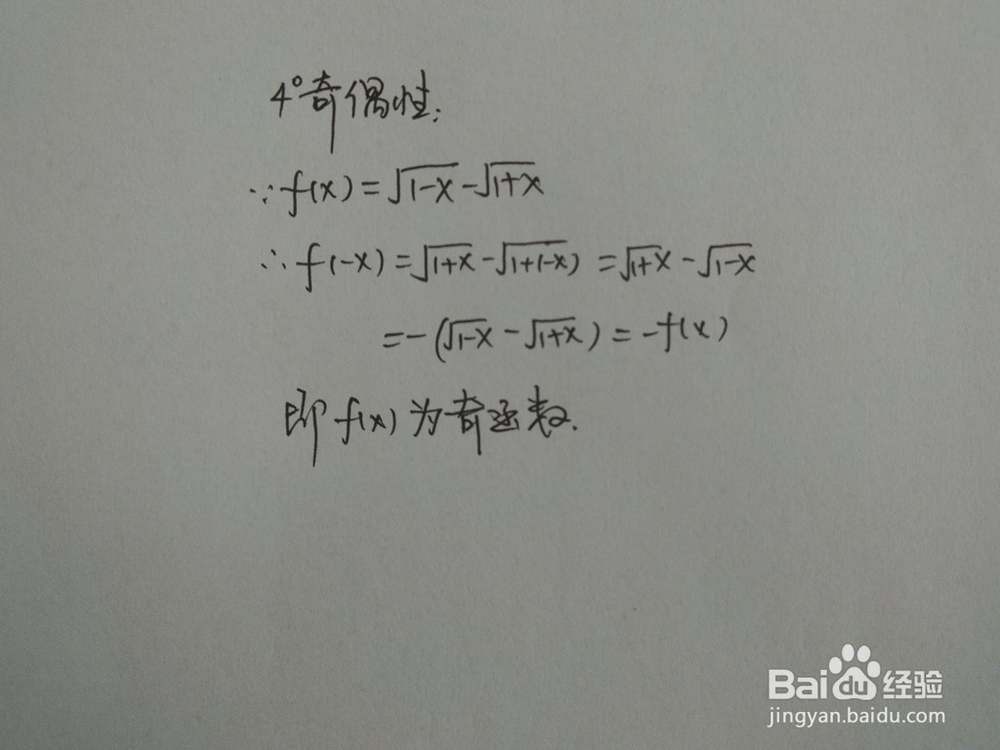 4°奇偶性:
∵f(x)=√1-x-√1+x
∴f(-x)=√1+x-√1+(-x)=√1+x-√1-x
=-(√1-x-√1+x)=-f(x)
即f(x)为奇函数.
Baidu经验
jingyan.baidu.com